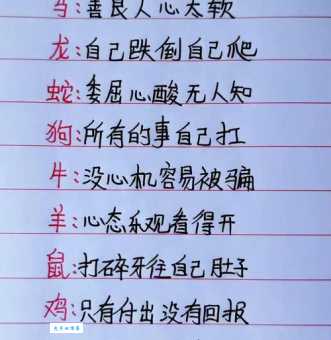 马:善良人心太软
龙:自己跌倒自己爬
蛇:委屈心酸无人知
狗:所有的事自己扛
牛:没心机容易被骗
羊:心态乐观看得开
鼠:打碎牙往自己肚子
鸡:只有付出没有回报